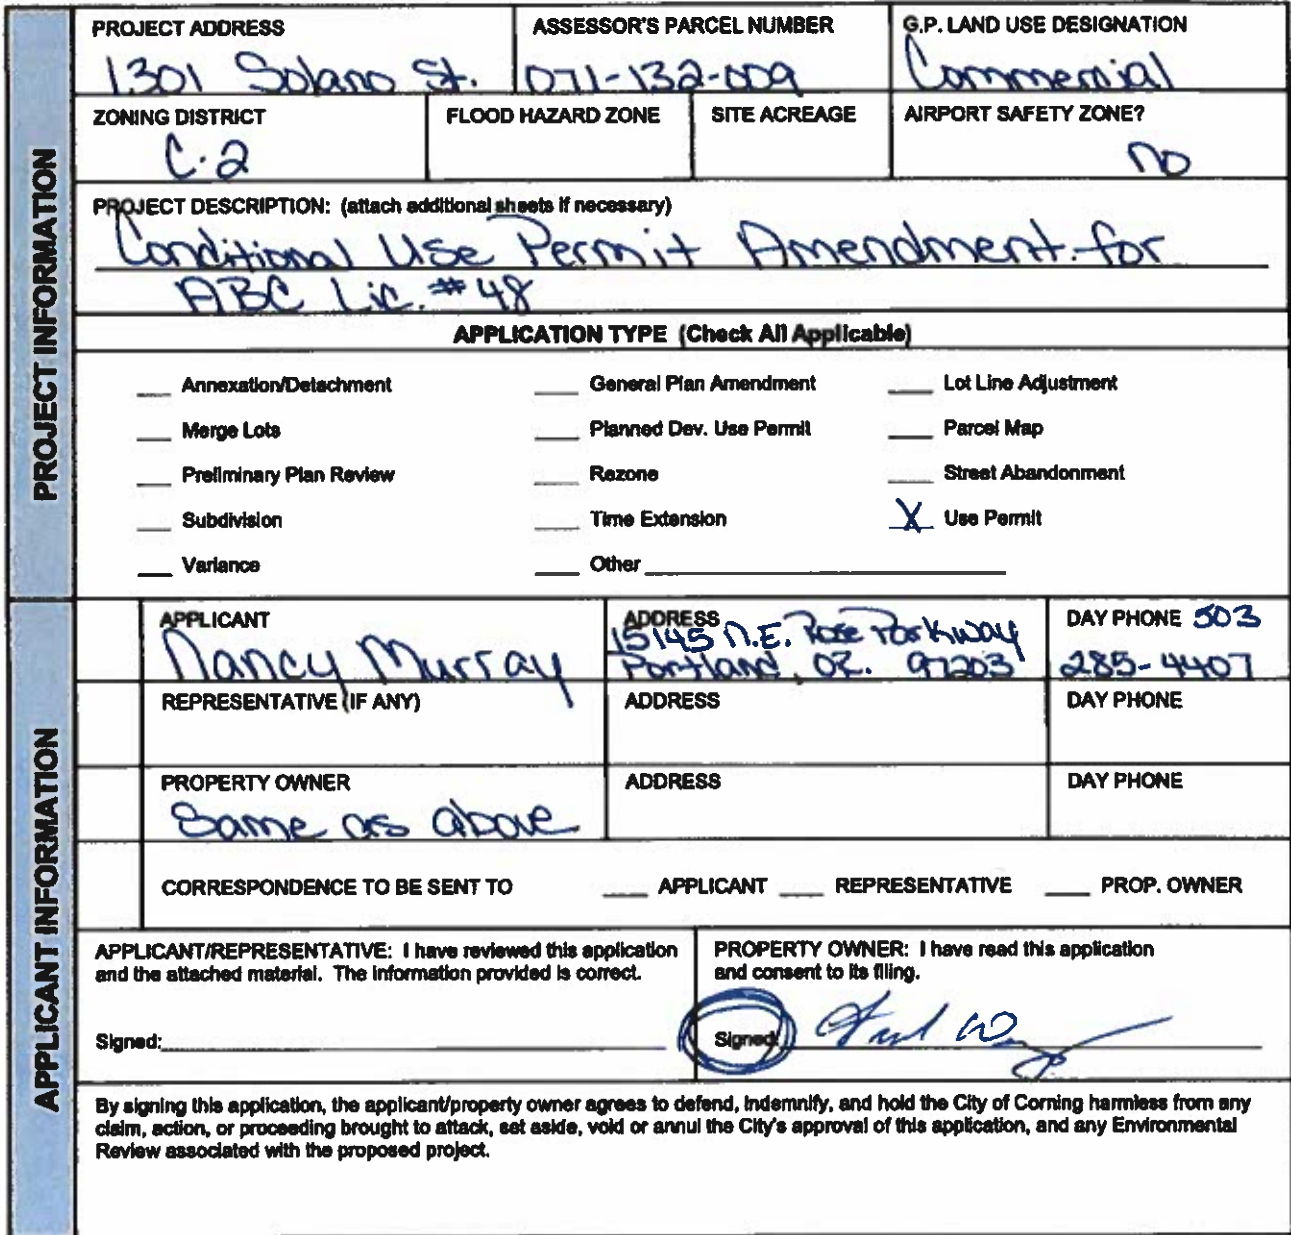 PROJECT INFORMATION
PROJECT ADDRESS
1301 Solano St.
ASSESSOR'S PARCEL NUMBER
071-132-009
G.P. LAND USE DESIGNATION
Commercial
ZONING DISTRICT
C-2
FLOOD HAZARD ZONE
SITE ACREAGE
AIRPORT SAFETY ZONE?
no
PROJECT DESCRIPTION: (attach additional sheets if necessary)
Conditional Use Permit Amendment for
ABC Lic. #48
APPLICATION TYPE (Check All Applicable)
___ Annexation/Detachment ___ General Plan Amendment ___ Lot Line Adjustment
___ Merge Lots ___ Planned Dev. Use Permit ___ Parcel Map
___ Preliminary Plan Review ___ Rezone ___ Street Abandonment
___ Subdivision ___ Time Extension X Use Permit
___ Variance ___ Other ___
APPLICANT INFORMATION
APPLICANT
Nancy Murray
ADDRESS
15145 N.E. Rose Parkway
Portland, OR. 97203
DAY PHONE 503
285-4407
REPRESENTATIVE (IF ANY)
ADDRESS
DAY PHONE
PROPERTY OWNER
Same as above
ADDRESS
DAY PHONE
CORRESPONDENCE TO BE SENT TO ___ APPLICANT ___ REPRESENTATIVE ___ PROP. OWNER
APPLICANT/REPRESENTATIVE: I have reviewed this application
and the attached material. The information provided is correct.
Signed:
PROPERTY OWNER: I have read this application
and consent to its filing.
Signed:
By signing this application, the applicant/property owner agrees to defend, indemnify, and hold the City of Corning harmless from any
claim, action, or proceeding brought to attack, set aside, void or annul the City's approval of this application, and any Environmental
Review associated with the proposed project.